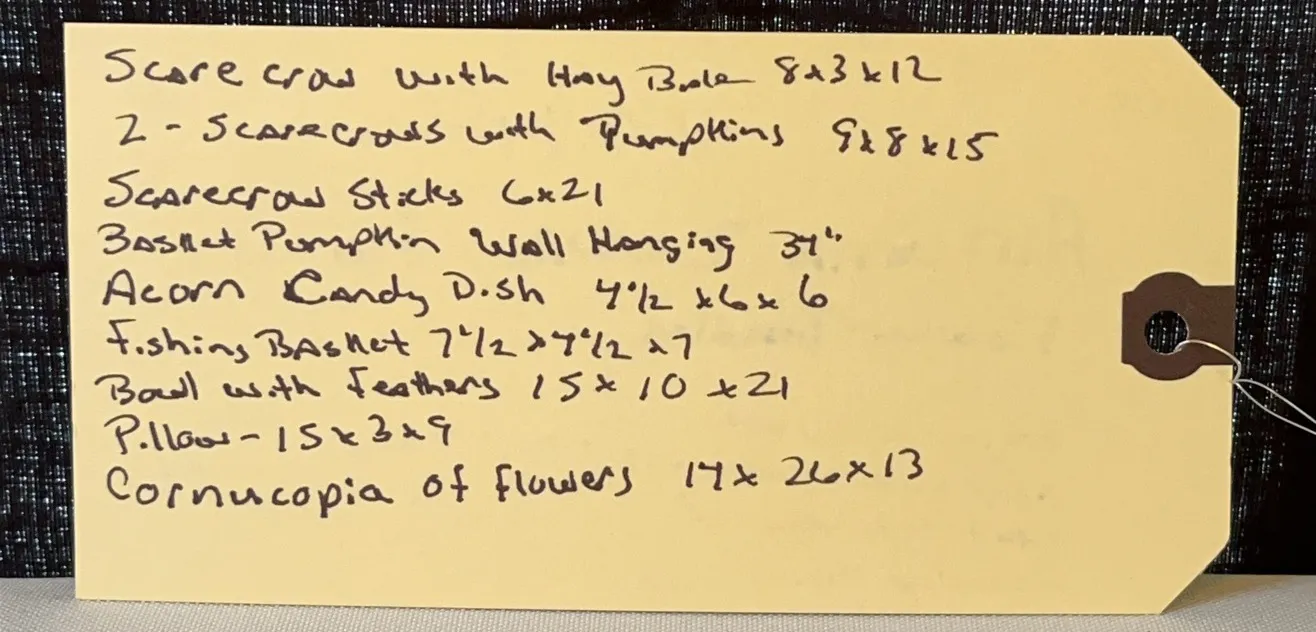 Scarecrow with Hay Bale 8x3x12
2 - Scarecrows with Pumpkins 9x8x15
Scarecrow Sticks 6x21
Basket Pumpkin Wall Hanging 34"
Acorn Candy Dish 4 1/2 x6x6
Fishing Basket 7 1/2 x4 1/2 x7
Bowl with feathers 15x10x21
Pillow - 15x3x9
Cornucopia of flowers 14x26x13